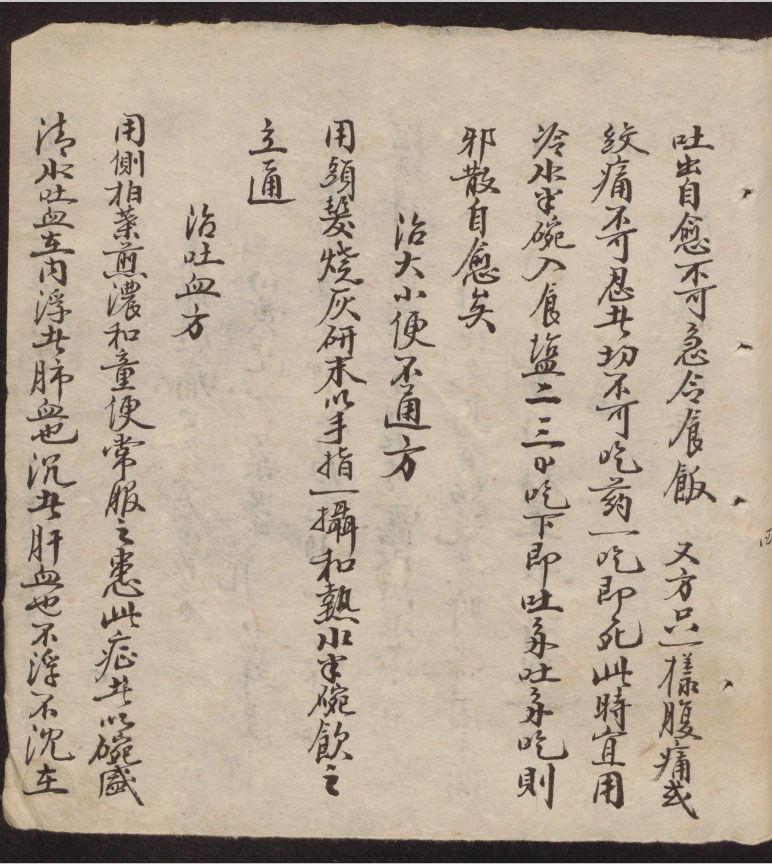 吐出自愈不可急令食飯　又方只一樣腹痛或
絞痛不可忍者切不可吃药一吃即死此時宜用
冷水半碗入食塩二三卜吃下即吐再吐再吃則
邪散自愈矣
治大小便不通方
用頭髮燒灰研末以手指一攝和熱水半碗飲之
立通
治吐血方
用側柏葉煎濃和童便常服之患此症者以碗盛
清水吐血在内浮者肺血也沉者肝血也不浮不沈在